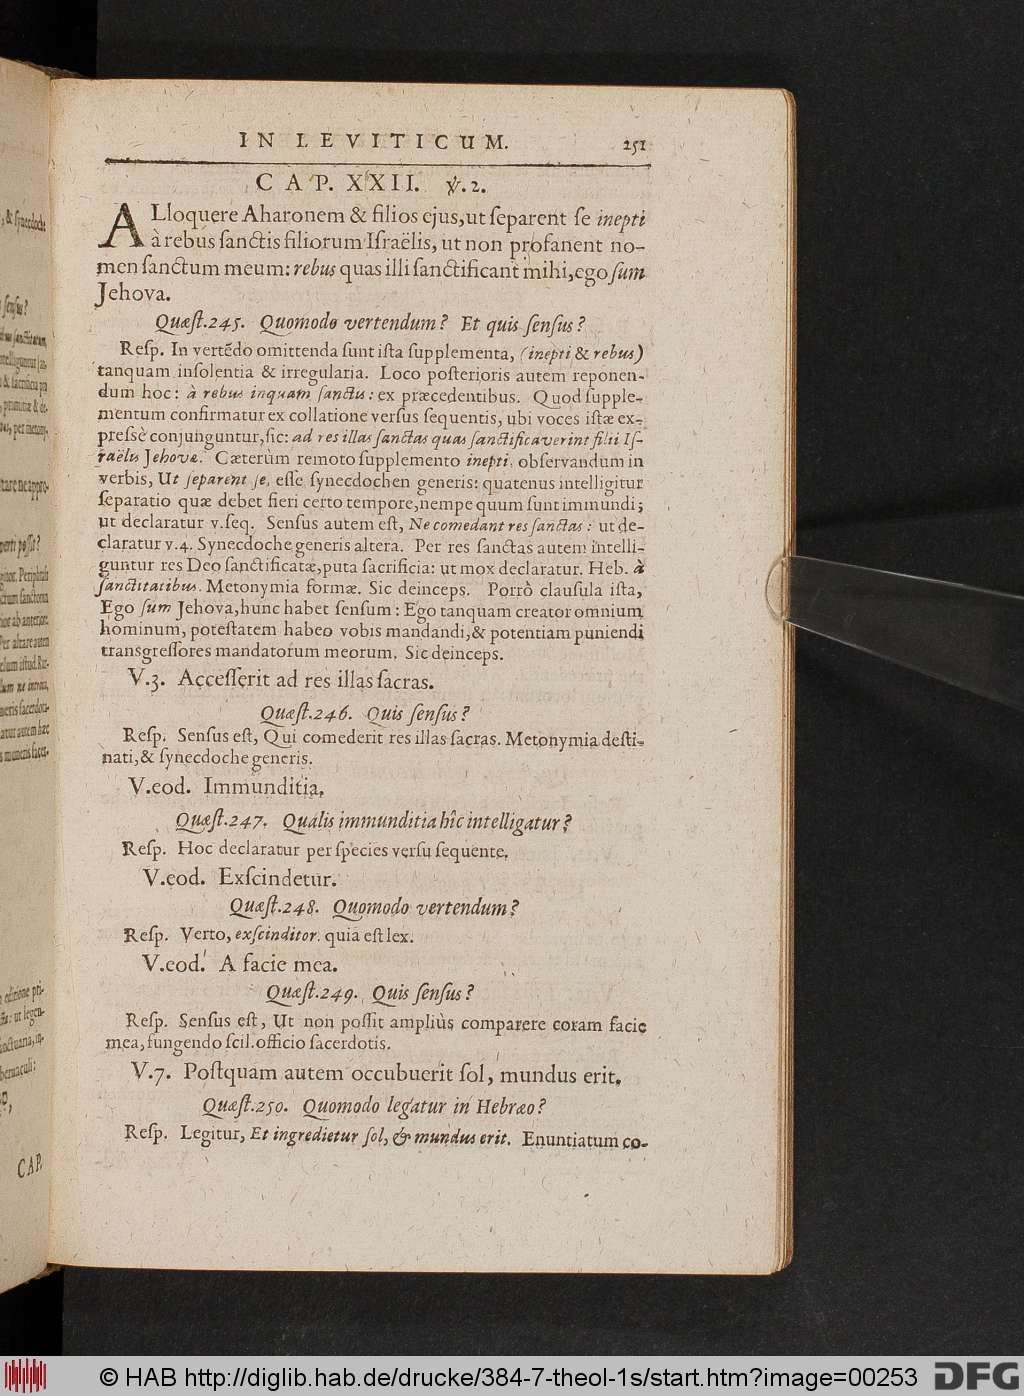 IN LEVITICUM. 251
CAP. XXII. ℣. 2.
ALloquere Aharonem & filios ejus, ut ſeparent ſe inepti
à rebus ſanctis filiorum Iſraëlis, ut non profanent no-
men ſanctum meum: rebus quas illi ſanctificant mihi, ego ſum
Jehova.
Quæſt. 245. Quomodo vertendum? Et quis ſenſus?
Reſp. In vertẽdo omittenda ſunt iſta ſupplementa, (inepti & rebus)
tanquam inſolentia & irregularia. Loco poſterioris autem reponen-
dum hoc: à rebus inquam ſanctis: ex præcedentibus. Quod ſupple-
mentum confirmatur ex collatione verſus ſequentis, ubi voces iſtæ ex-
preſsè conjunguntur, ſic: ad res illas ſanctas quas ſanctificaverint filii Iſ-
raëlis Jehovæ. Cæterùm remoto ſupplemento inepti, obſervandum in
verbis, Ut ſeparent ſe, eſſe ſynecdochen generis: quatenus intelligitur
ſeparatio quæ debet fieri certo tempore, nempe quum ſunt immundi;
ut declaratur v. ſeq. Senſus autem eſt, Ne comedant res ſanctas: ut de-
claratur v. 4. Synecdoche generis altera. Per res ſanctas autem intelli-
guntur res Deo ſanctificatæ, puta ſacrificia: ut mox declaratur. Heb. à
ſanctitatibus. Metonymia formæ. Sic deinceps. Porrò clauſula iſta,
Ego ſum Jehova, hunc habet ſenſum: Ego tanquam creator omnium
hominum, poteſtatem habeo vobis mandandi, & potentiam puniendi
transgreſſores mandatorum meorum. Sic deinceps.
V. 3. Acceſſerit ad res illas ſacras.
Quæſt. 246. Quis ſenſus?
Reſp. Senſus eſt, Qui comederit res illas ſacras. Metonymia deſti-
nati, & ſynecdoche generis.
V. eod. Immunditia.
Quæſt. 247. Qualis immunditia hîc intelligatur?
Reſp. Hoc declaratur per ſpecies verſu ſequente.
V. eod. Exſcindetur.
Quæſt. 248. Quomodo vertendum?
Reſp. Verto, exſcinditor. quia eſt lex.
V. eod. A facie mea.
Quæſt. 249. Quis ſenſus?
Reſp. Senſus eſt, Ut non poſſit ampliùs comparere coram facie
mea, fungendo ſcil. officio ſacerdotis.
V. 7. Poſtquam autem occubuerit ſol, mundus erit.
Quæſt. 250. Quomodo legatur in Hebræo?
Reſp. Legitur, Et ingredietur ſol, & mundus erit. Enuntiatum co-
CAP.
© HAB http://diglib.hab.de/drucke/384-7-theol-1s/start.htm?image=00253
DFG